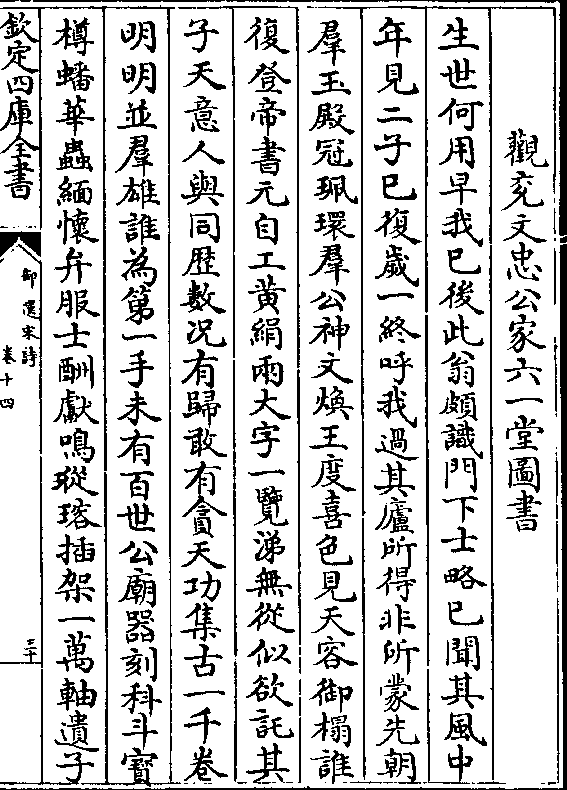 觀兖文忠公家六一堂圖書
生世何用早我已後此翁頗識門下士略已聞其風中
年見二子已復歲一終呼我過其廬所得非所蒙先朝
羣玉殿冠珮環羣公神文煥王度喜色見天容御榻誰
復登帝書元自工黄絹兩大字一覽涕無從似欲託其
子天意人與同歴數况有歸敢有貪天功集古一千卷
明明並羣雄誰為第一手未有百世公廟器刻科斗寳
樽蟠華蟲緬懷弁服士酬獻鳴瑽瑢插架一萬軸遺子
欽定四庫全書
御選宋詩
卷十四
三十